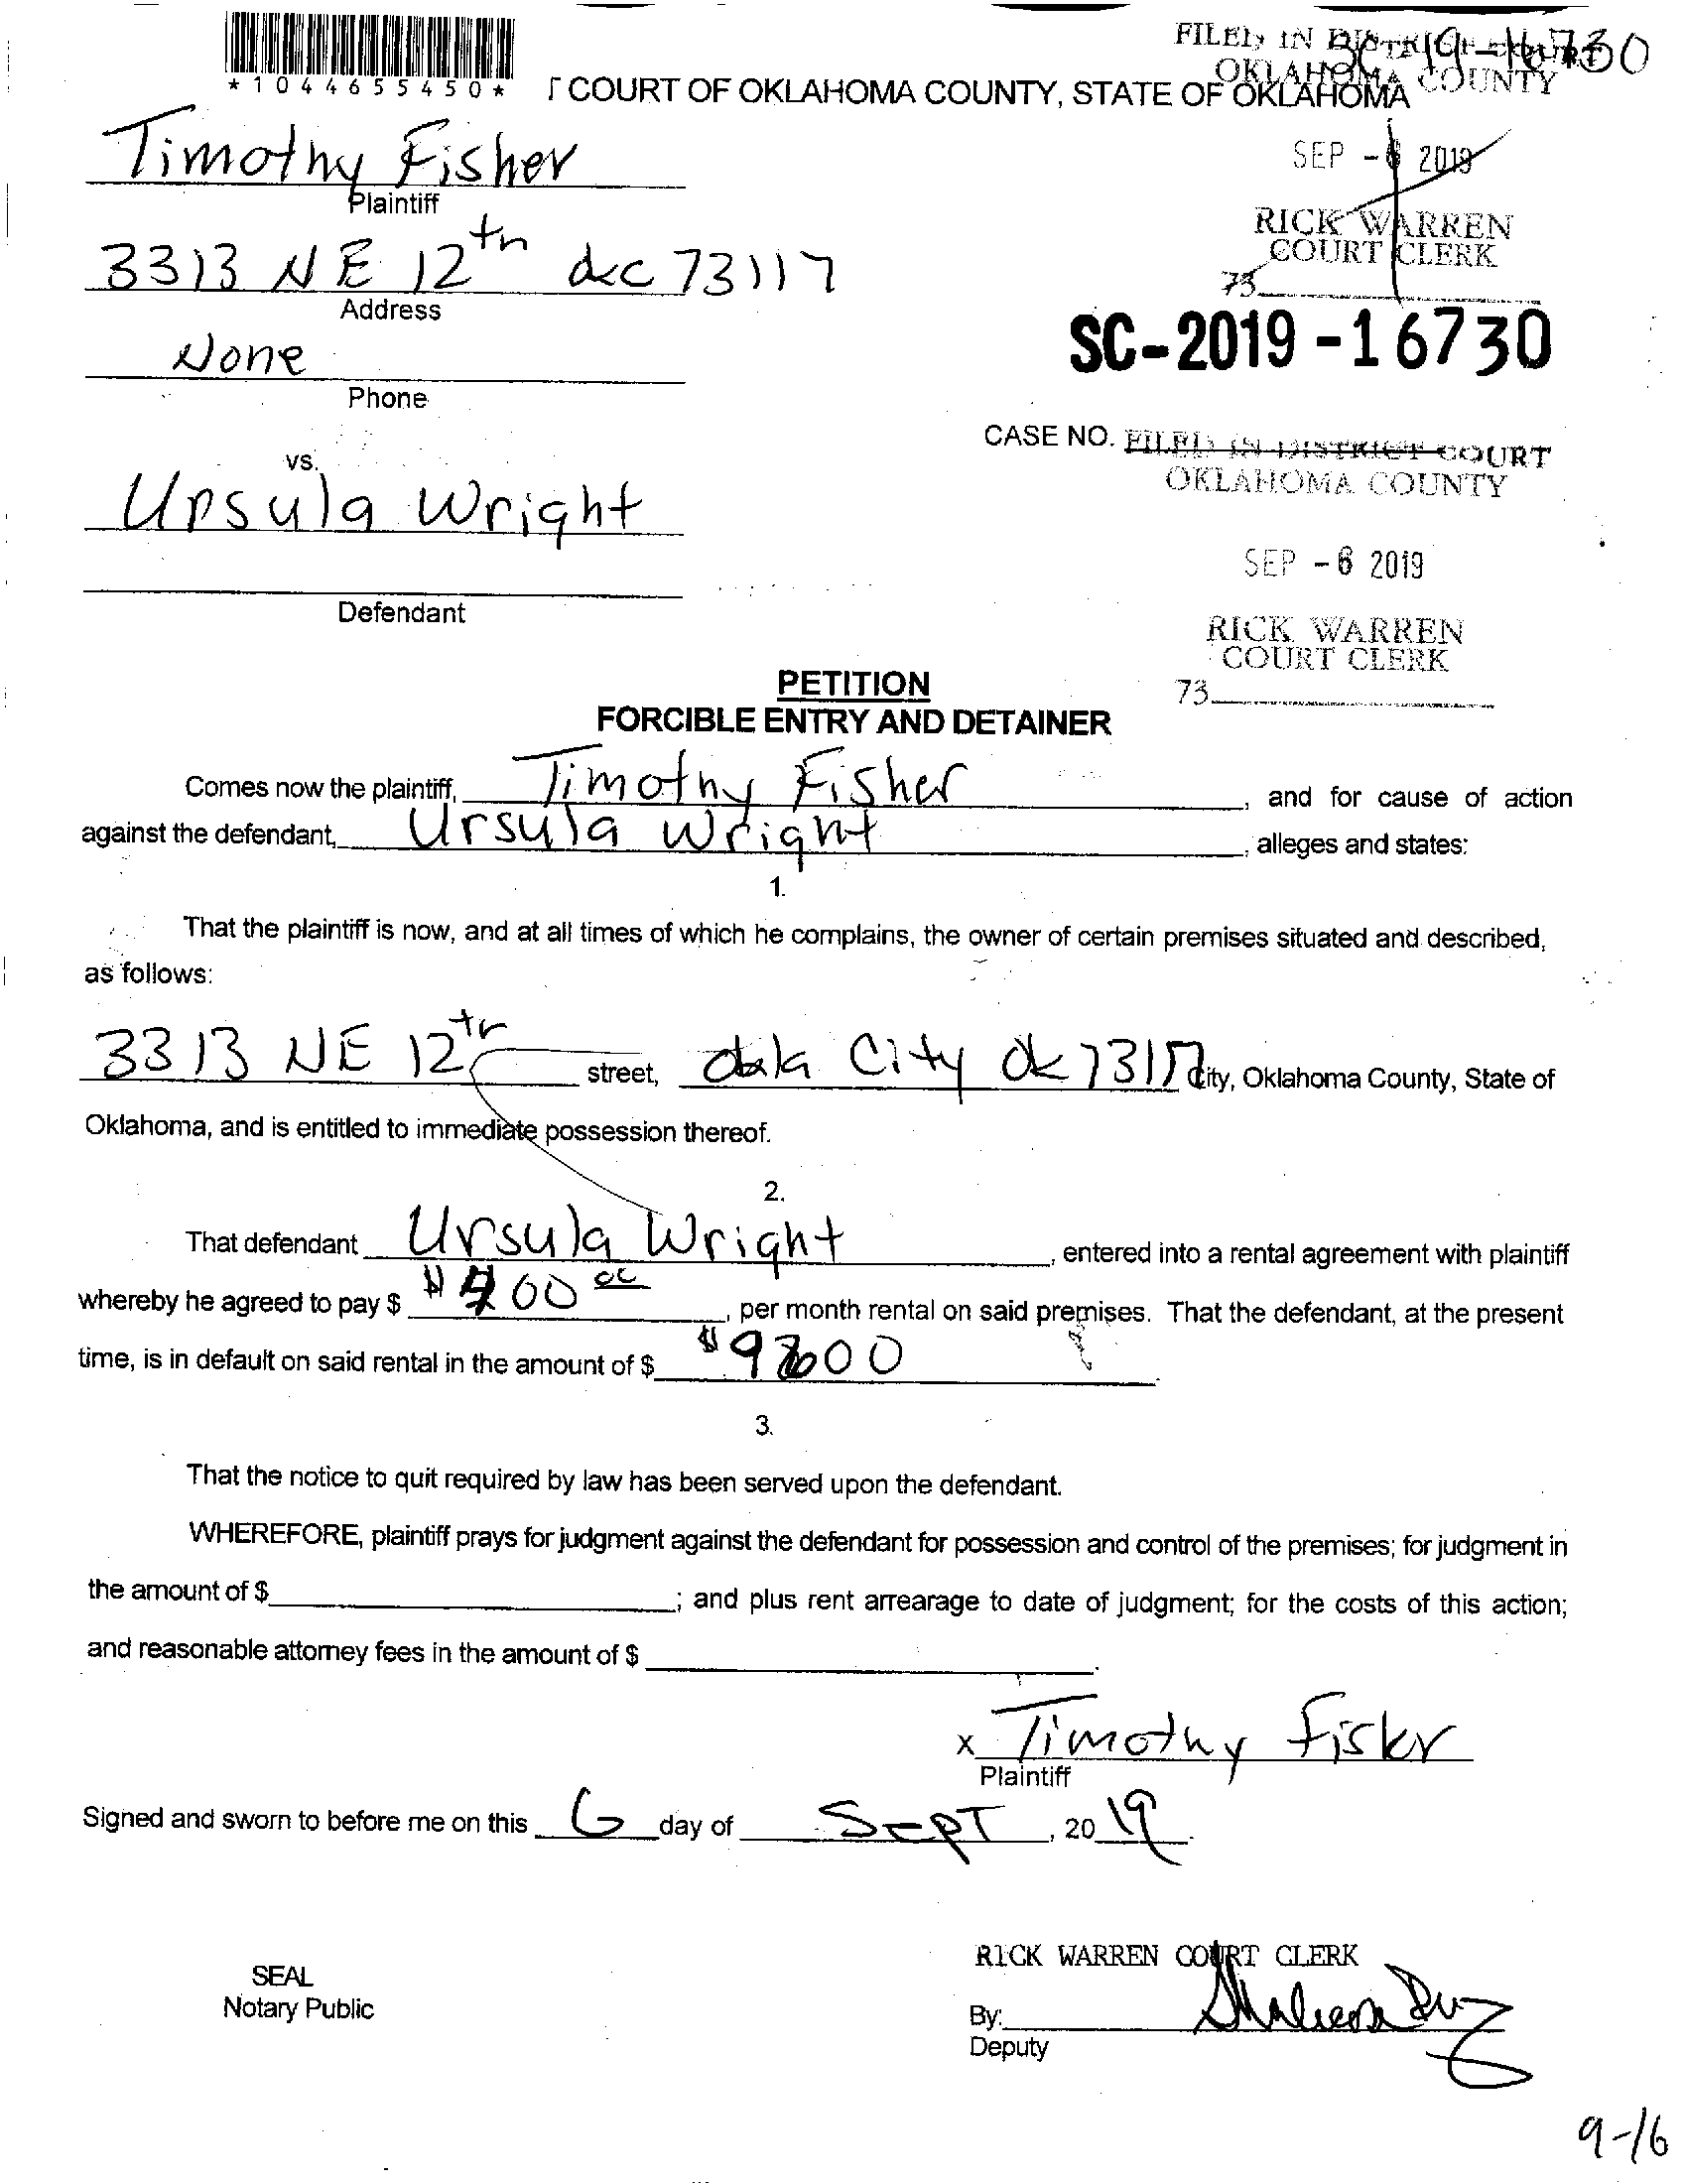 *1044655450*
COURT OF OKLAHOMA COUNTY, STATE OF OKLAHOMA
FILED IN DISTRICT COURT
OKLAHOMA COUNTY
19-16730
SEP -6 2019
RICK WARREN
COURT CLERK
73
Timothy Fisher
Plaintiff
3313 NE 12th okc 73117
Address
None
Phone
SC-2019-16730
CASE NO.
FILED IN DISTRICT COURT
OKLAHOMA COUNTY
SEP -6 2019
RICK WARREN
COURT CLERK
73
vs.
Ursula Wright
Defendant
PETITION
FORCIBLE ENTRY AND DETAINER
Comes now the plaintiff, Timothy Fisher, and for cause of action
against the defendant, Ursula Wright, alleges and states:
1.
That the plaintiff is now, and at all times of which he complains, the owner of certain premises situated and described,
as follows:
3313 NE 12th street, okla City Ok 73117 City, Oklahoma County, State of
Oklahoma, and is entitled to immediate possession thereof.
2.
That defendant Ursula Wright, entered into a rental agreement with plaintiff
whereby he agreed to pay $ , per month rental on said premises. That the defendant, at the present
time, is in default on said rental in the amount of $ .
3.
That the notice to quit required by law has been served upon the defendant.
WHEREFORE, plaintiff prays for judgment against the defendant for possession and control of the premises; for judgment in
the amount of $ ; and plus rent arrearage to date of judgment; for the costs of this action;
and reasonable attorney fees in the amount of $ .
x Timothy Fisher
Plaintiff
Signed and sworn to before me on this 6 day of SEPT, 20 19.
SEAL
Notary Public
RICK WARREN COURT CLERK
By:
Deputy
9-16